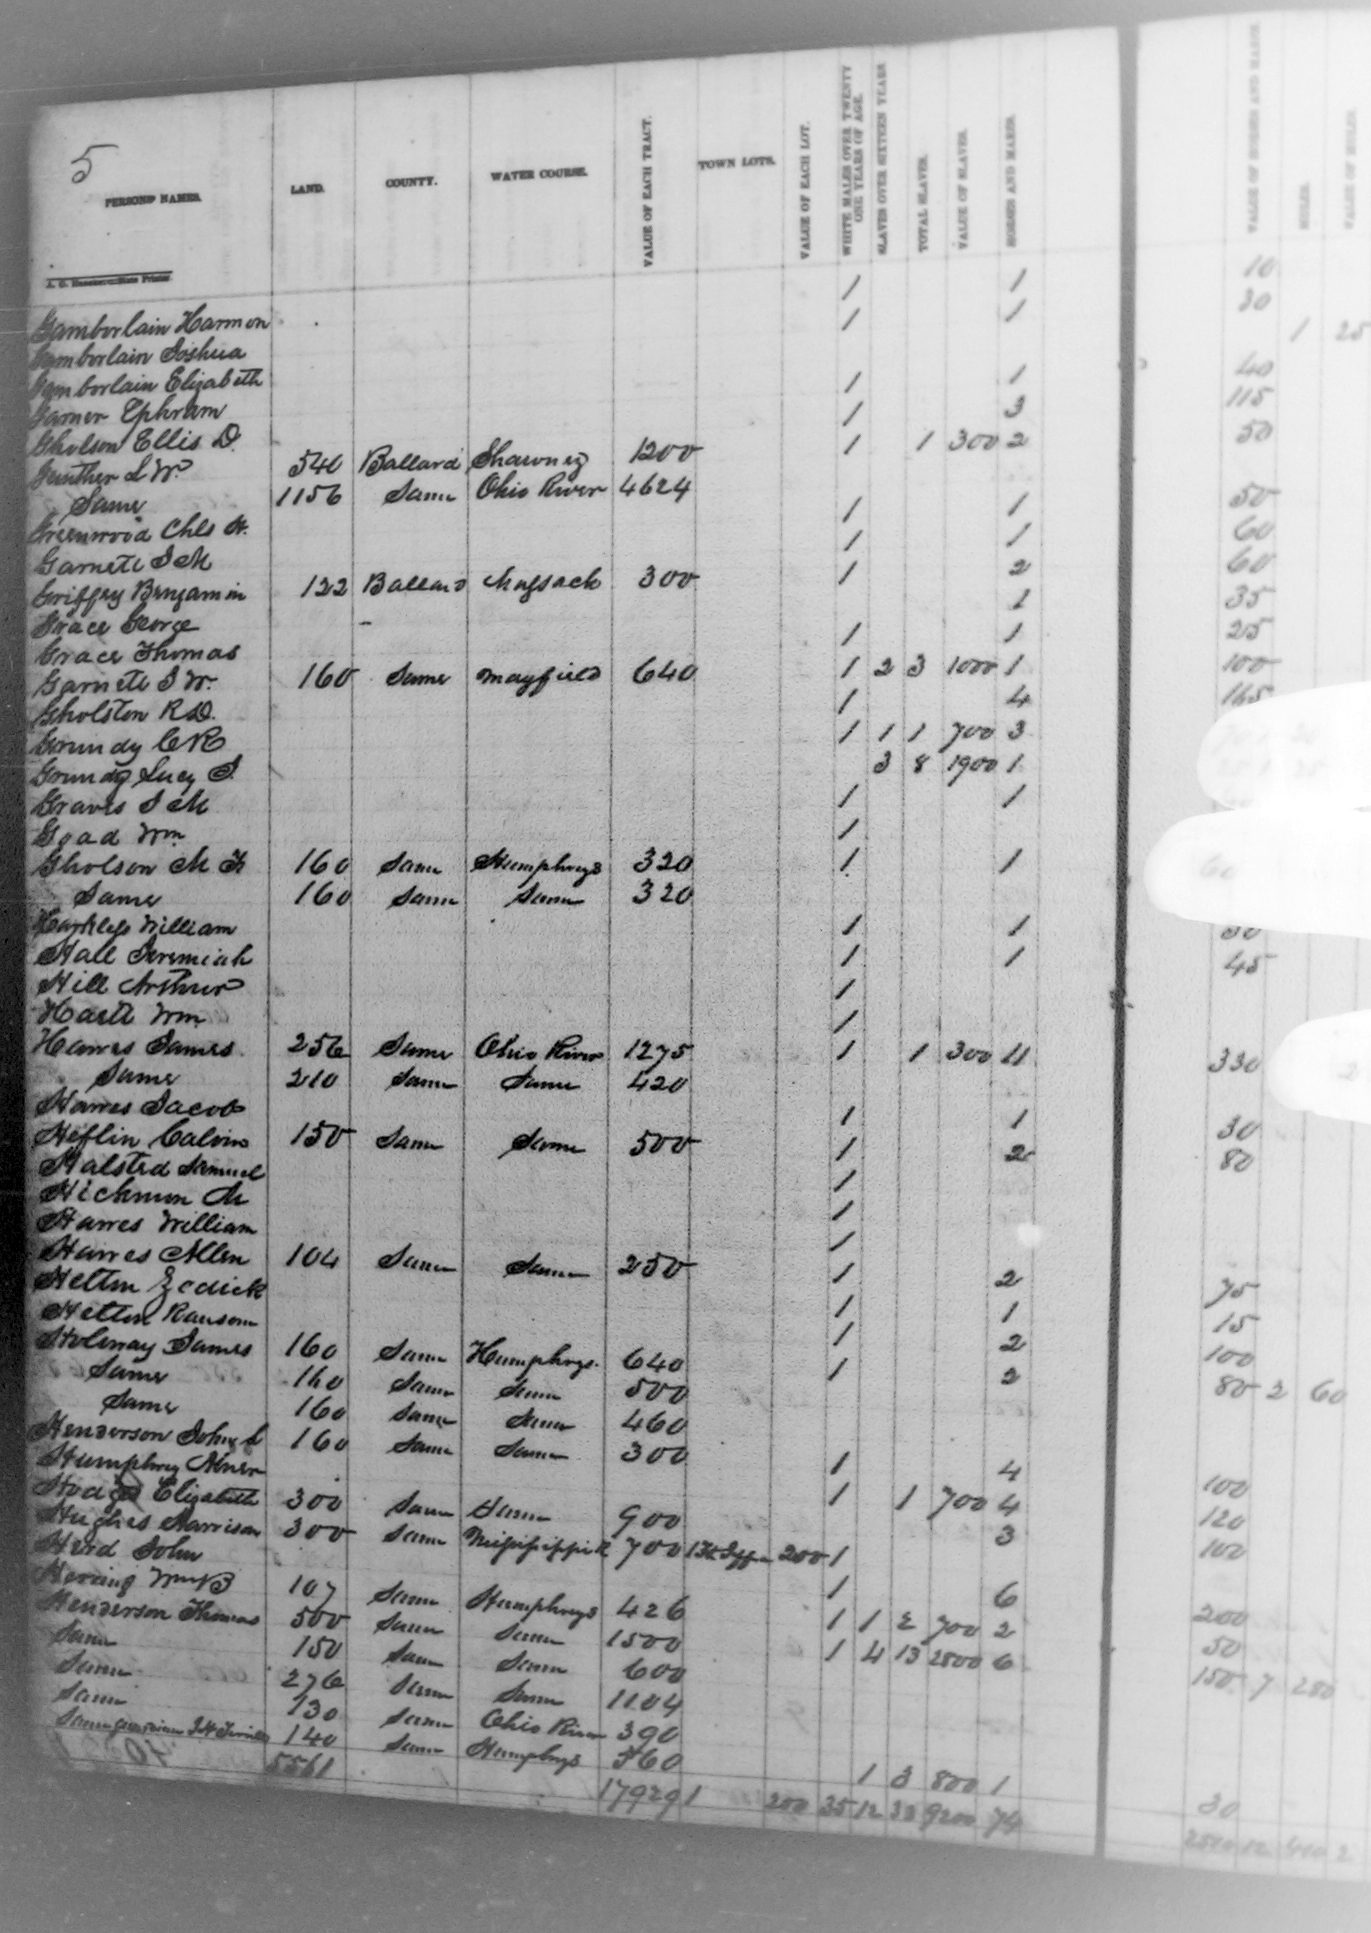 5
PERSONS' NAMES. LAND. COUNTY. WATER COURSE. VALUE OF EACH TRACT. TOWN LOTS. VALUE OF EACH LOT. WHITE MALES OVER TWENTY ONE YEARS OF AGE. SLAVES OVER SIXTEEN YEARS TOTAL SLAVES. VALUE OF SLAVES. HORSES AND MARES. VALUE OF HORSES AND MARES. MULES. VALUE OF MULES.
Gamborlain Harmon 1 1 10
Gamborlain Joshua 1 1 30
Gamborlain Elizabeth 1
Garner Ephram 1 1 40
Gholson Ellis D. 1 3 115
Gunther L W. 540 Ballard Shawney 1200 1 1 300 2 50
Same 1156 Same Ohio River 4624
Greenwood Chls 1 1 50
Garnett J M 1 1 60
Griffey Benjamin 122 Ballard 300 1 2 60
Grace George 1 35
Grace Thomas 1 1 25
Garnett J W. 160 Same Mayfield 640 1 2 3 1000 1 100
Gholston R D. 1 4 165
Grundy C R 1 1 1 700 3
Grundy Lucy J. 3 8 1900 1
Graves J M 1 1
Goad Wm 1
Gholson M F 160 Same Humphreys 320 1 1 60
Same 160 Same Same 320
William 1 1 30
Hall Jeremiah 1 1 45
Hill Arthur 1
Wm 1
Hawes James 256 Same Ohio River 1275 1 1 300 11 330
Same 210 Same Same 420
Hawes Jacob 1 1 30
Heflin Calvin 150 Same Same 500 1 2 80
Halsted Samuel 1
Hickmon M 1
Hawes William 1
Hawes Allen 104 Same Same 250 1 2 75
Helton 1 1 15
Helton Ransom 1 2 100
Holoway James 160 Same Humphreys 640 1 2 80 2 60
Same 160 Same Same 500
Same 160 Same Same 460
Henderson John L 160 Same Same 300 1 4 100
Humphrey Abner 1 1 700 4 120
Hodge Elizabeth 300 Same Same 900 3 100
Hughes Harrison 300 Same Missisippi R 700 1 200 1
Hurd John 1 6 200
Herring Wm B 107 Same Humphreys 426 1 1 2 700 2 50
Henderson Thomas 500 Same Same 1500 1 4 13 2800 6 150 7 280
Same 150 Same Same 600
Same 276 Same Same 1104
Same 130 Same Ohio River 390
Same guardian 140 Same Humphrys 560 1 3 800 1 30
5561 17929 1 200 35 12 33 9200 74